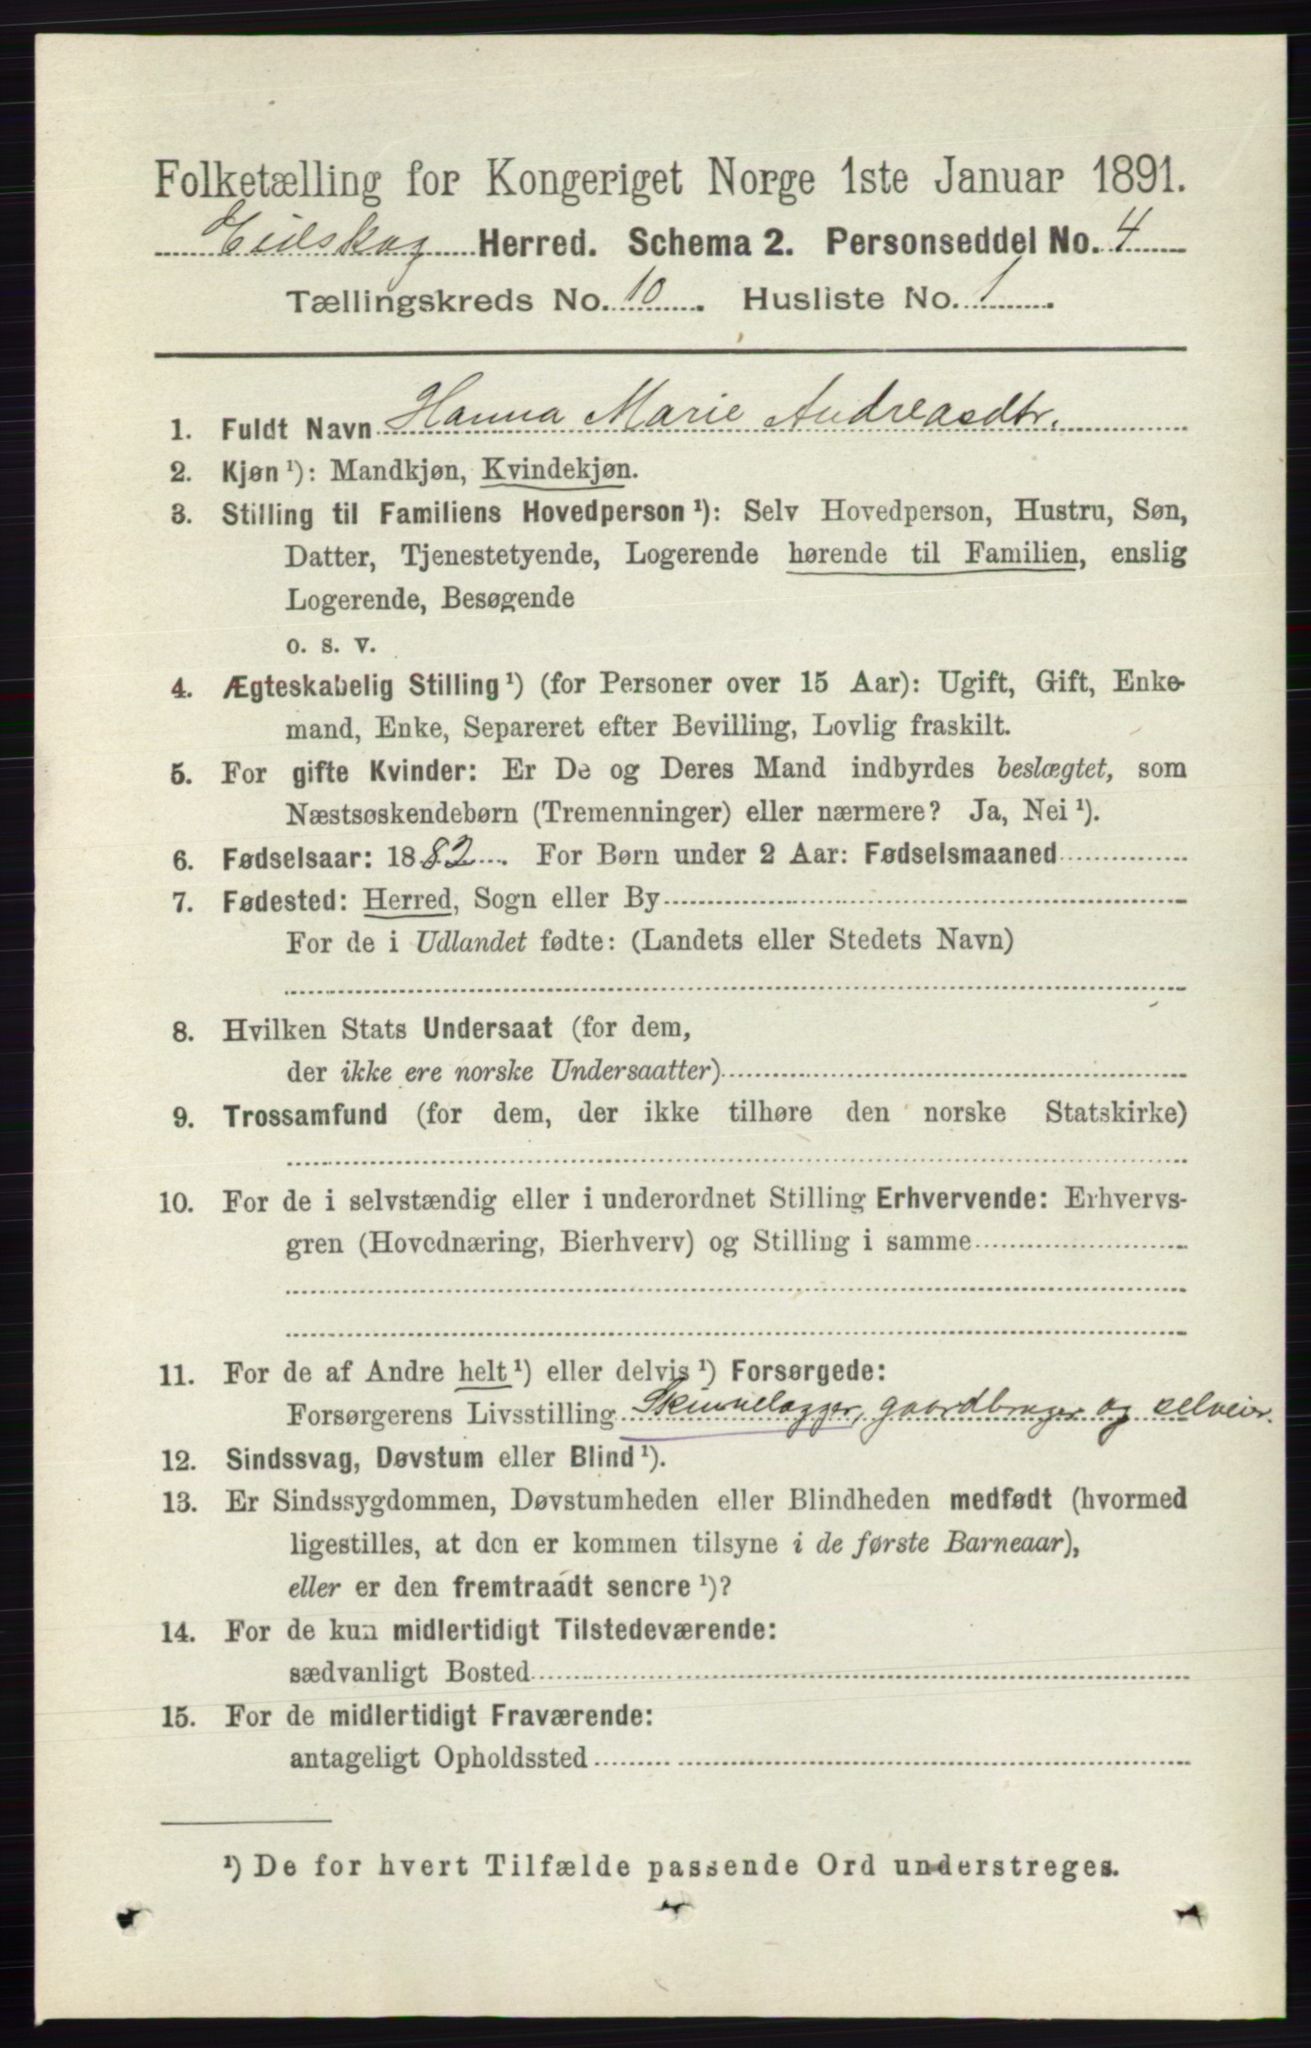 Folketælling for Kongeriget Norge 1ste Januar 1891.
Eidskog Herred. Schema 2. Personseddel No. 4
Tællingskreds No. 10. Husliste No. 1.
1. Fuldt Navn Hanna Marie Andreasdtr.
2. Kjøn ¹): Mandkjøn, Kvindekjøn.
3. Stilling til Familiens Hovedperson ¹): Selv Hovedperson, Hustru, Søn,
Datter, Tjenestetyende, Logerende hørende til Familien, enslig
Logerende, Besøgende
o. s. v.
4. Ægteskabelig Stilling ¹) (for Personer over 15 Aar): Ugift, Gift, Enke-
mand, Enke, Separeret efter Bevilling, Lovlig fraskilt.
5. For gifte Kvinder: Er De og Deres Mand indbyrdes beslægtet, som
Næstsøskendebørn (Tremenninger) eller nærmere? Ja, Nei ¹).
6. Fødselsaar: 1882. For Børn under 2 Aar: Fødselsmaaned
7. Fødested: Herred, Sogn eller By
For de i Udlandet fødte: (Landets eller Stedets Navn)
8. Hvilken Stats Undersaat (for dem,
der ikke ere norske Undersaatter)
9. Trossamfund (for dem, der ikke tilhøre den norske Statskirke)
10. For de i selvstændig eller i underordnet Stilling Erhvervende: Erhvervs-
gren (Hovednæring, Bierhverv) og Stilling i samme
11. For de af Andre helt ¹) eller delvis ¹) Forsørgede:
Forsørgerens Livsstilling Skinnelægger, gaardbruger og selveier.
12. Sindssvag, Døvstum eller Blind ¹).
13. Er Sindssygdommen, Døvstumheden eller Blindheden medfødt (hvormed
ligestilles, at den er kommen tilsyne i de første Barneaar),
eller er den fremtraadt senere ¹)?
14. For de kun midlertidigt Tilstedeværende:
sædvanligt Bosted
15. For de midlertidigt Fraværende:
antageligt Opholdssted
¹) De for hvert Tilfælde passende Ord understreges.